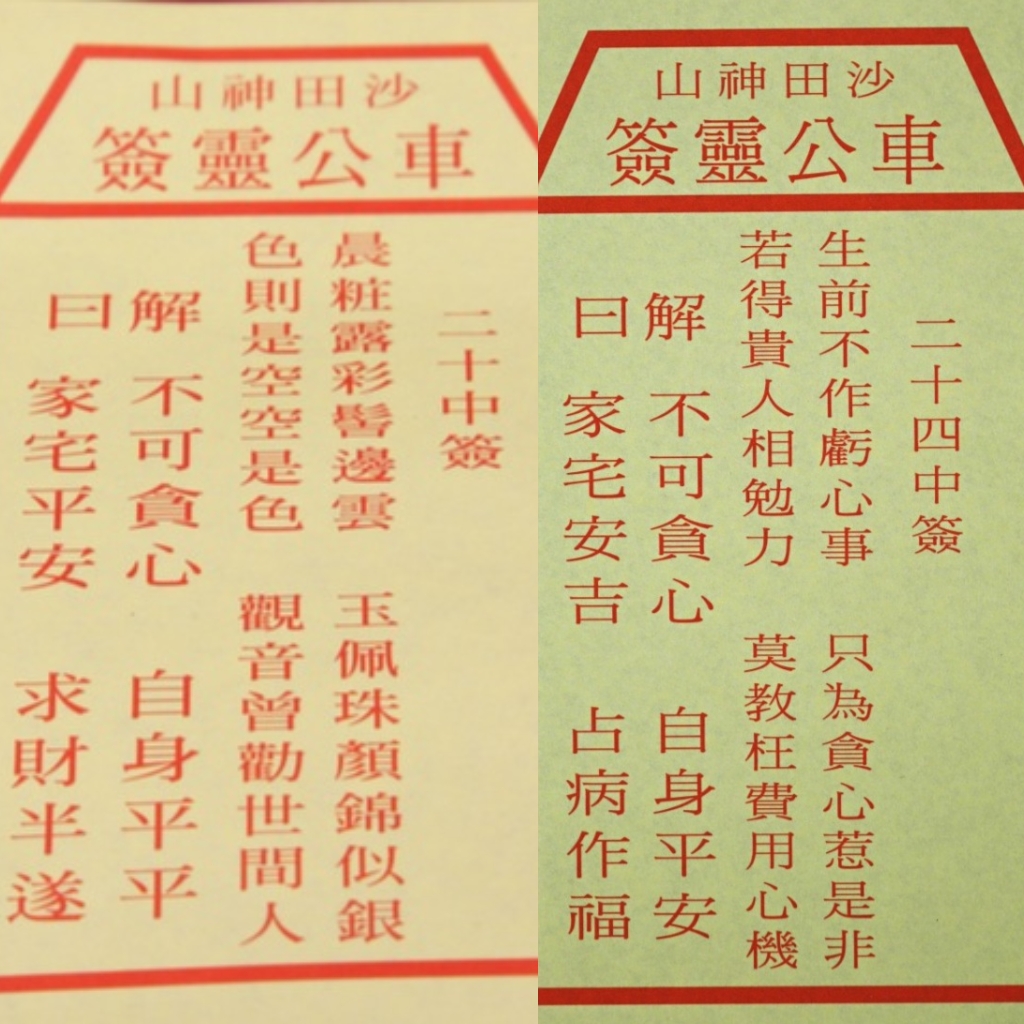 沙田神山
車公靈簽
二十中簽
晨粧露彩髻邊雲　玉佩珠顏錦似銀
色則是空空是色　觀音曾勸世間人
解　不可貪心　自身平平
曰　家宅平安　求財半遂
沙田神山
車公靈簽
二十四中簽
生前不作虧心事　只為貪心惹是非
若得貴人相勉力　莫教枉費用心機
解　不可貪心　自身平安
曰　家宅安吉　占病作福